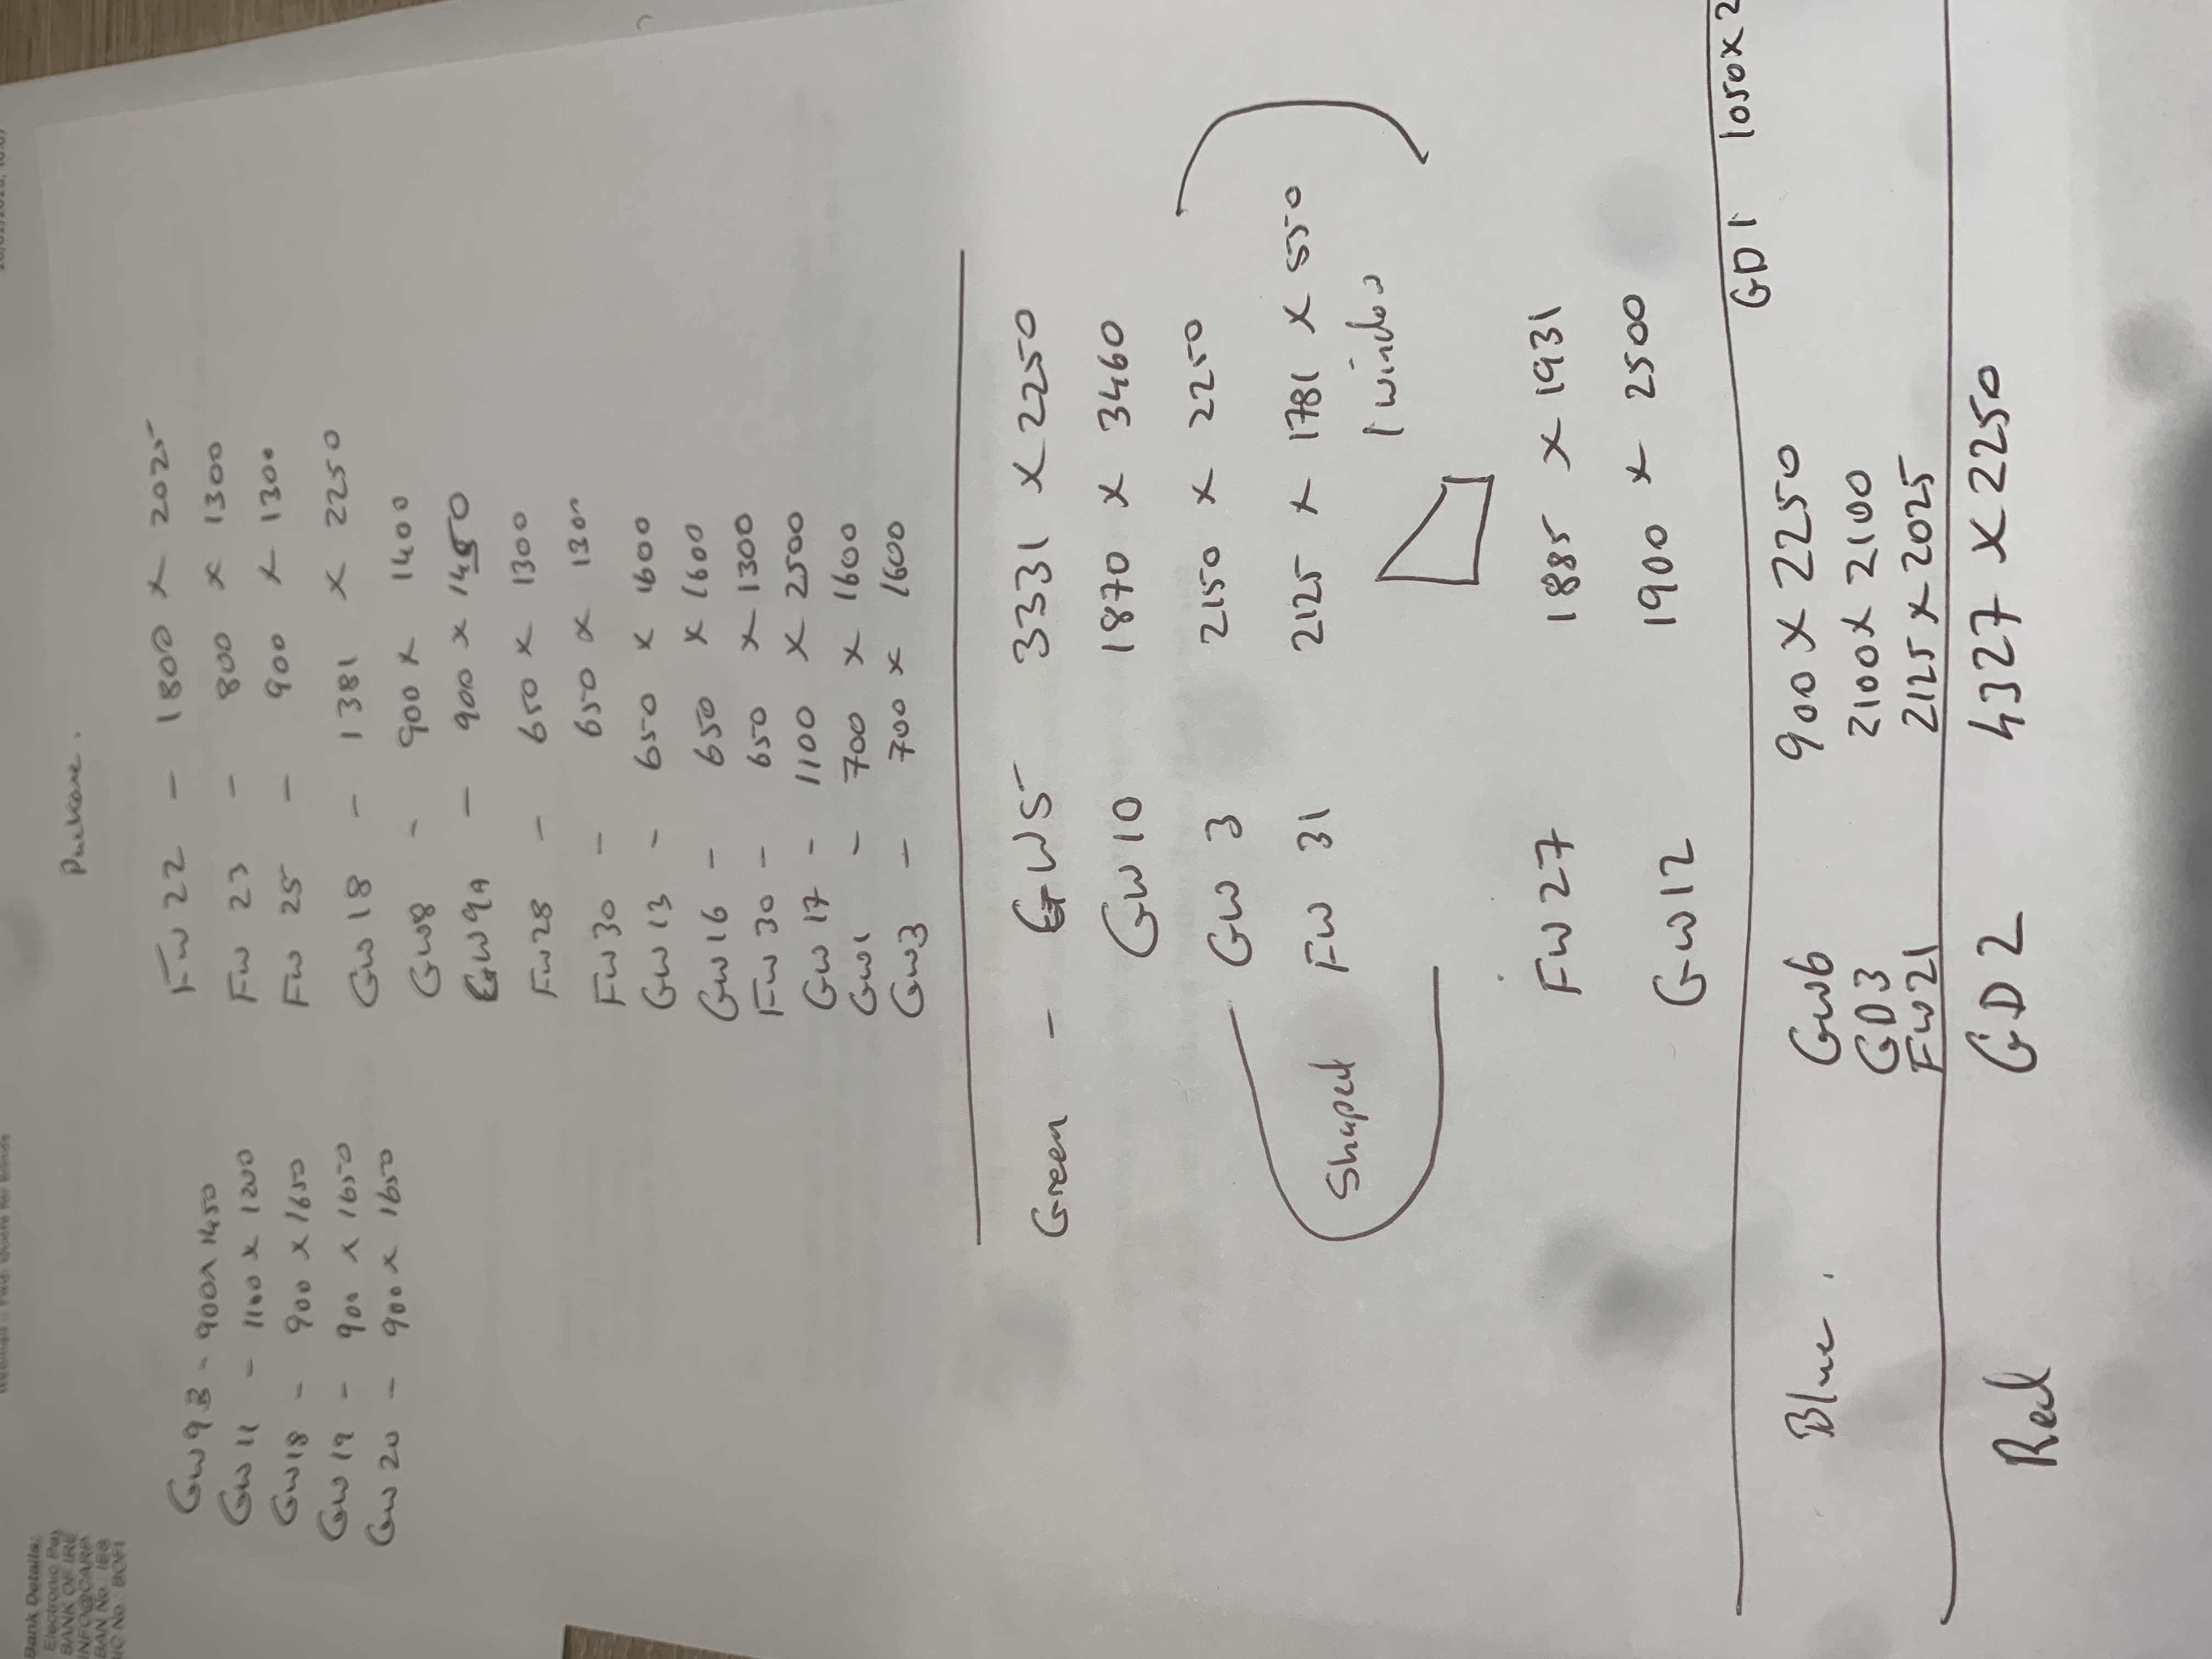 Bank Details:
Electronic Pay
BANK OF IRE
INFO@CARP
BAN No: IE8
IC No: BOFI
GW9B - 900x1450
GW11 - 1100 x 1200
GW18 - 900 x 1650
GW19 - 900 x 1650
GW20 - 900 x 1650
FW22 - 1800 x 2025
FW 23 - 800 x 1300
FW 25 - 900 x 1300
GW18 - 1381 x 2250
GW8 - 900 x 1400
GW9A - 900 x 1450
FW28 - 650 x 1300
FW30 - 650 x 1300
GW13 - 650 x 1600
GW16 - 650 x 1600
FW30 - 650 x 1300
GW17 - 1100 x 2500
GW1 - 700 x 1600
GW3 - 700 x 1600
Green - GW5 3331 x 2250
GW10 1870 x 3460
GW 3 2150 x 2250
Shaped FW 31 2125 x 1781 x 550
1 window
FW27 1885 x 1931
GW12 1900 x 2500
GD1 1050x2
Blue. GW6 900 x 2250
GD3 2100x 2100
FW21 2125 x 2025
Red GD2 4327 x 2250